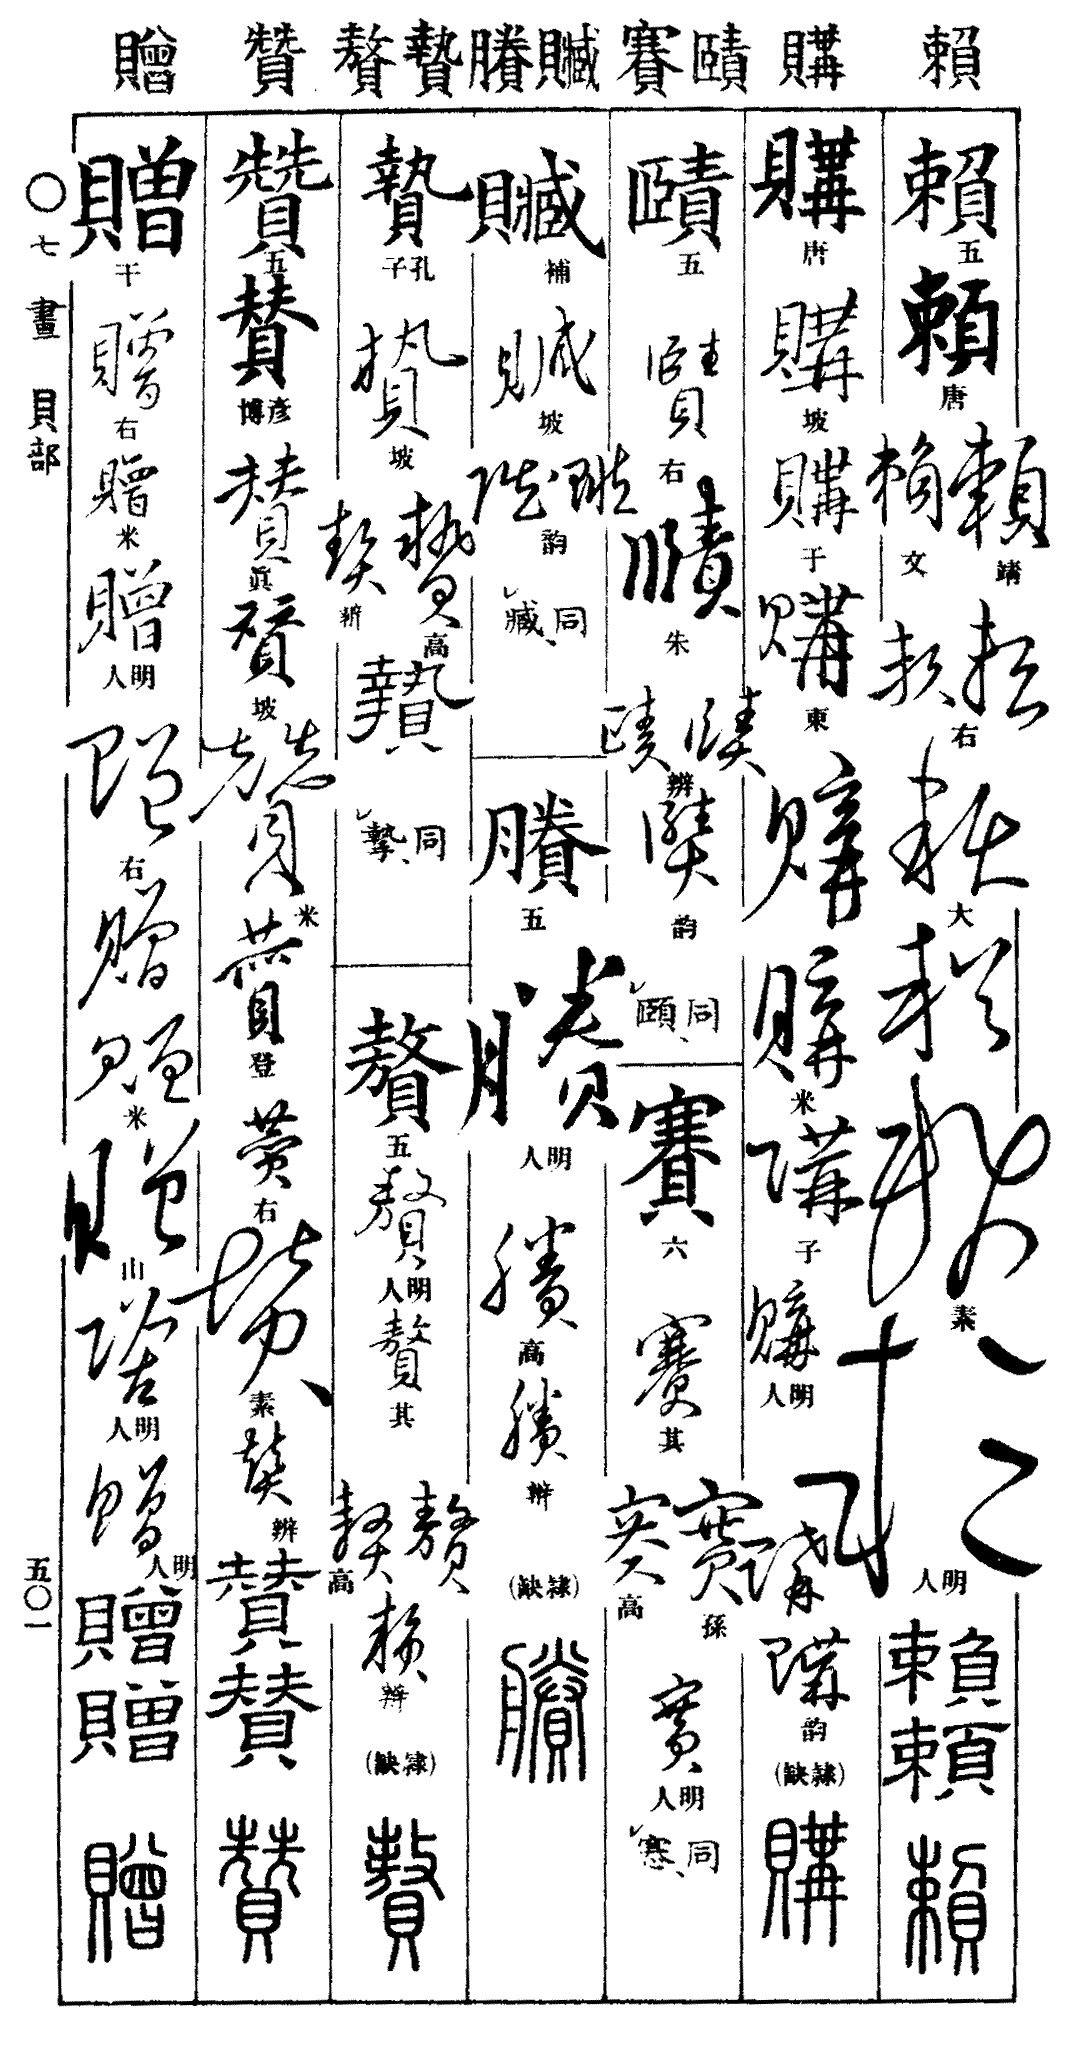 賴 購 賾 賽 贓 賸 贄 贅 贊 贈
賴 五
賴 唐
賴 靖
賴 文
賴 右
賴 大
賴 素
賴 明人
賴
賴
賴
購 唐
購 坡
購 于
購 東
購
購 米
購 子
購 明人
購
購 韵
(隸缺)
購
賾 五
賾 右
賾 朱
賾 辨
賾 韵
同頤
賽 六
賽 其
賽 孫
賽 高
賽 明人
同寒
贓 補
贓 坡
贓 韵
同臧
賸 五
賸 明人
賸 高
賸 辨
(隸缺)
賸
贄 孔子
贄 坡
贄 高
贄 辨
贄
同摯
贅 五
贅 明人
贅 其
贅 高
贅 辨
(隸缺)
贅
贊 五
贊 彥博
贊 眞
贊 坡
贊 米
贊 登
贊 右
贊 素
贊 辨
贊
贊
贊
贈 干
贈 右
贈 米
贈 明人
贈 右
贈
贈 米
贈 山
贈 明人
贈 明人
贈
贈
贈
〇七畫 貝部
五〇一